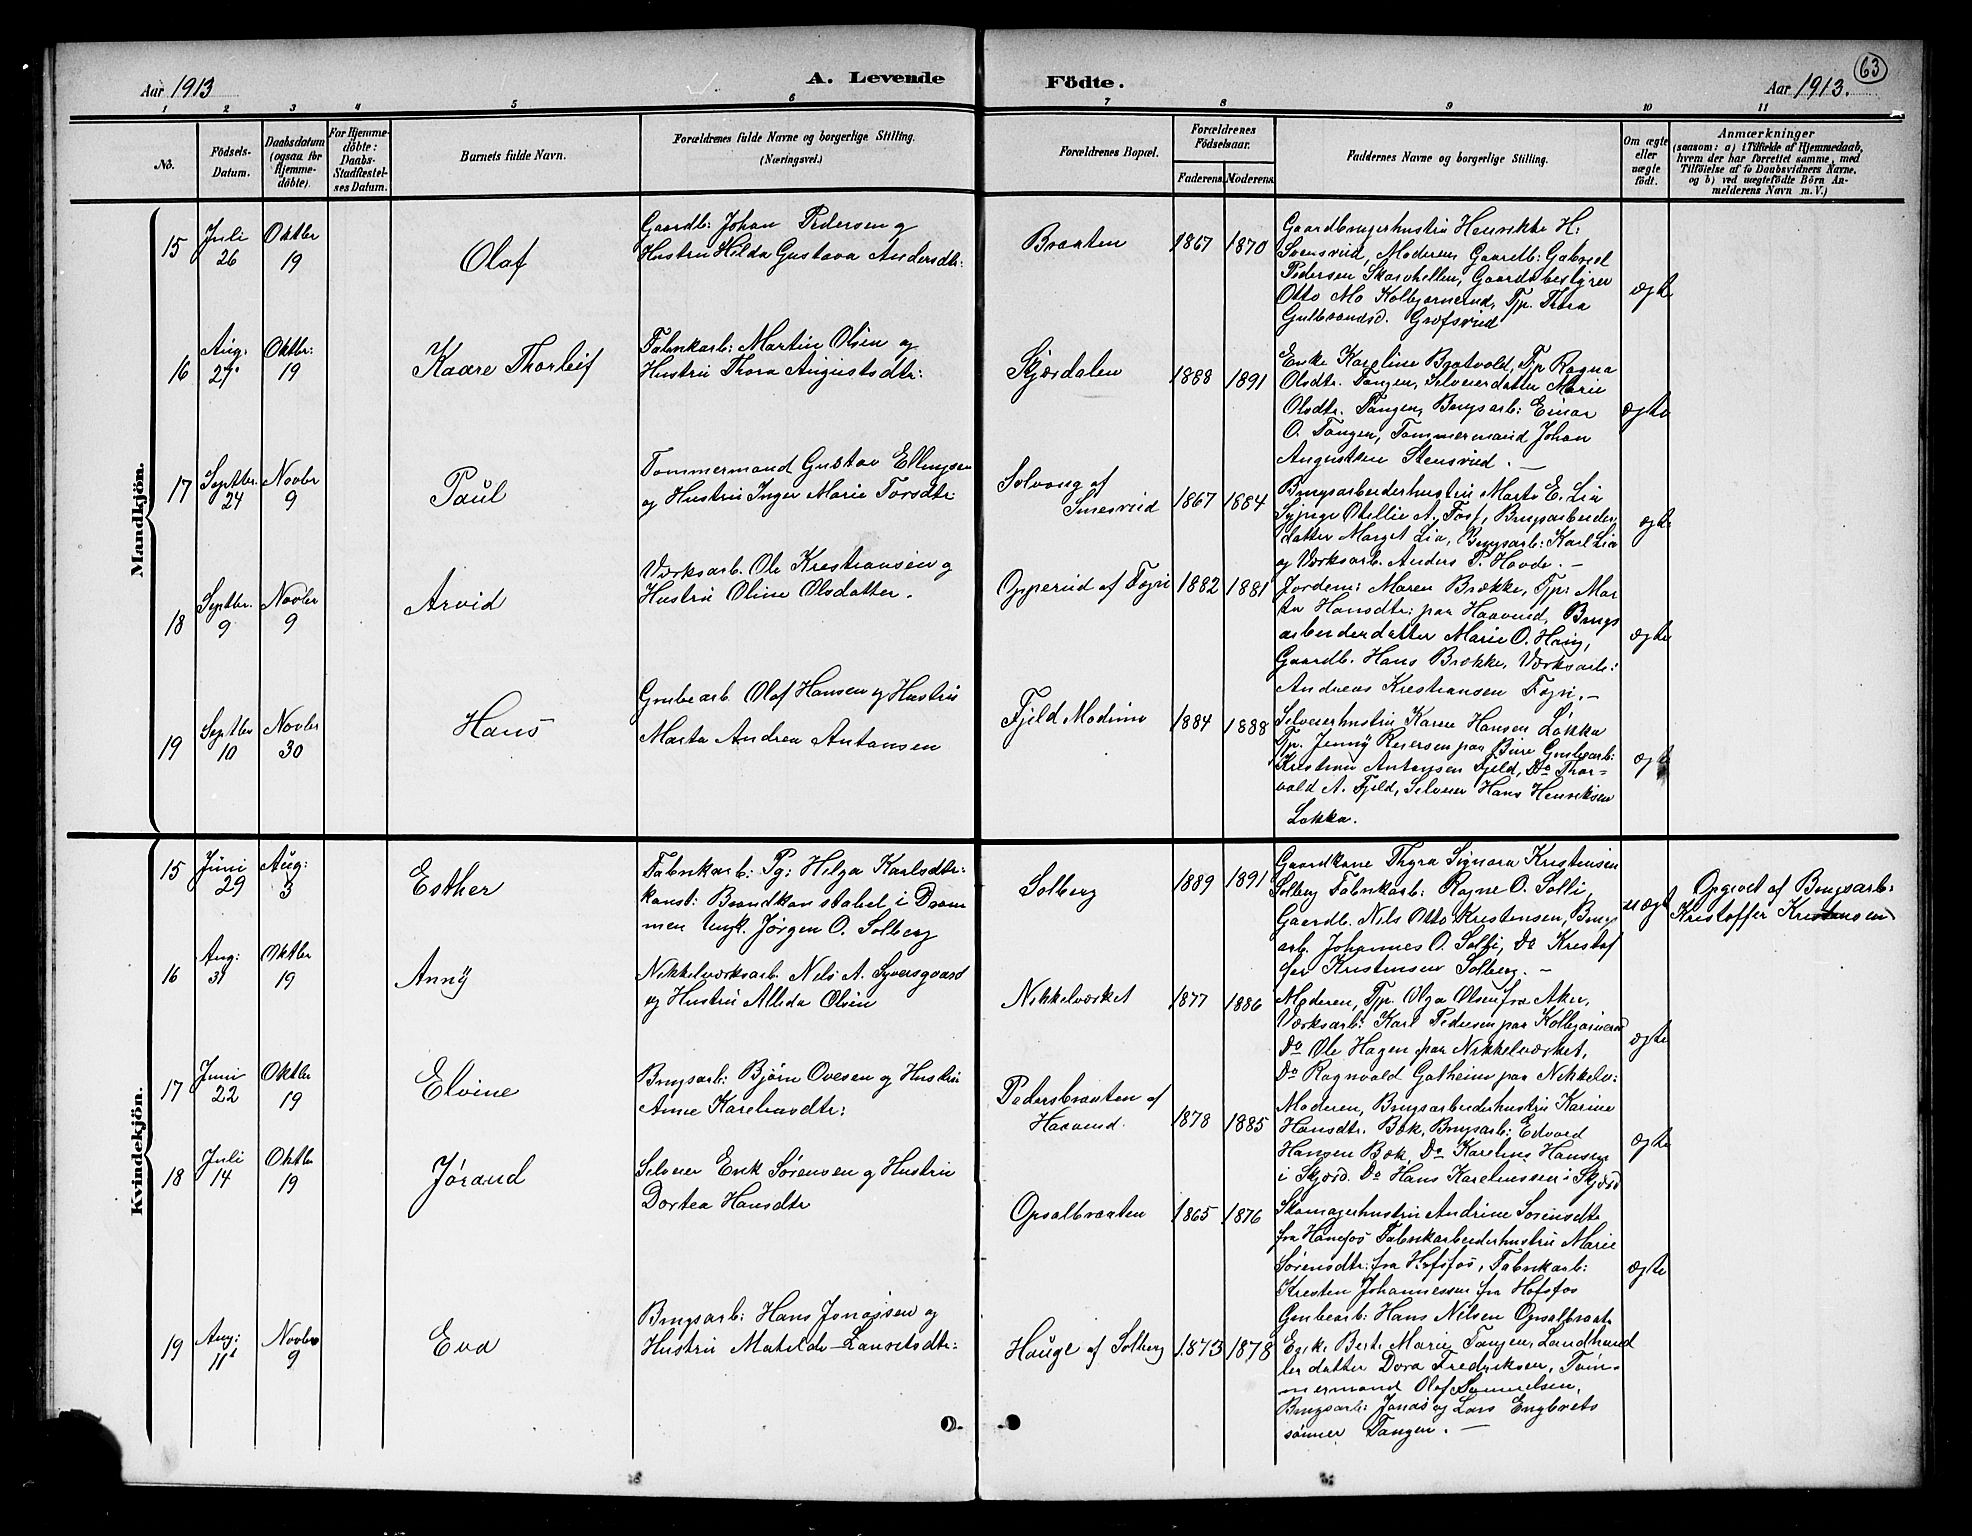 Aar 1913
A. Levende
Födte.
63
Aar 1913.
1 2 3 4 5 6 7 8 9 10 11
Nö.
Födsels-
Datum.
Daabsdatum
(ogsaa for
Hjemme-
döbte).
For Hjemme-
döbte:
Daabs-
Stadfæstel-
ses Datum.
Barnets fulde Navn.
Forældrenes fulde Navne og borgerlige Stilling.
(Næringsvei.)
Forældrenes Bopæl.
Forældrenes
Födselsaar.
Faderens. Moderens.
Faddernes Navne og borgerlige Stilling.
Om ægte
eller
uægte
födt.
Anmærkninger
(saasom: a) i Tilfælde af Hjemmedaab,
hvem der har forrettet samme, med
Tilföielse af to Daabsvidners Navne,
og b) ved uægtefödte Börn An-
melderens Navn m. V.)
Mandkjön.
15
Juli
26
Oktbr
19
Olaf
Gaardb: Johan Pedersen og
Hustru Hilda Gustava Andersdtr:
Braaten
1867
1870
Gaardbrugerhustru Henrikke H:
Svensrud, Moderen Gaardb: Gabriel
Pedersen Skarvhellen, Gaardsbestyrer
Otto Mo Kolbjørnerud, Tp. Thora
Gulbrandsd. Grøfsrud
ægte
16
Aug.
27
Oktbr:
19
Kaare Thorleif
Fabrikarb: Martin Olsen og
Hustru Thora Augustsdtr:
Skjørdalen
1888
1891
Enke Karoline Bratvold, Tp Ragna
Olsdtr. Tangen, Selveierdatter Marie
Olsdtr. Tangen, Brugsarb: Einar
O. Tangen, Tømmermand Johan
Augustsen Stensrud. —
ægte
17
Septbr.
24
Novbr
9
Paul
Tømmermand Gustav Ellingsen
og Hustru Inger Marie Torsdtr:
Solvang af
Smesrud
1867
1884
Brugsarbeiderhustru Marte E. Lia
Sypige Otellie A. Foss, Brugsarbeider
datter Margit Lia, Brugsarb: Karl Lia
og Værksarb. Anders P. Hovde. —
ægte
18
Septbr.
9
Novbr
9
Arvid
Værksarb. Ole Kristiansen og
Hustru Oline Olsdatter.
Opperud af Fogn
1882
1881
Jordem: Maren Brække, Tp: Mar
ta Hansdtr: paa Haavrud, Brugs
arbeiderdatter Marie O. Haug,
Gaardb. Hans Brække, Værksarb:
Andreas Kristiansen Fogn. —
ægte
19
Septbr
10
Novbr
30
Hans
Grubearb. Olaf Hansen og Hustru
Marta Andrea Antonsen
Fjeld Modum
1884
1888
Selveierhustru Karen Hansen Løkka
Tp. Jenny Reiersen paa Bure Grubearb:
Kristian Antonsen Fjeld, Do Thor-
vald A. Fjeld, Selveier Hans Henriksen
Løkka.
ægte
Kvindekjön.
15
Juni
29
Aug:
3
Esther
Fabrikarb: Pg: Helga Karlsdtr:
konst: Brandkonstabel i Dram
men Ungk. Jørgen O. Solberg
Solberg
1889
1891
Gaardkone Thyra Signora Kristensen
Solberg Fabrikarb: Ragne O. Solli,
Gaardb. Nils Otto Kristensen, Brugs
arb. Johannes O. Solli, Do Kristof
fer Kristensen Solberg. —
uægte
Opgivet af Brugsarb:
Kristoffer Kristensen
16
Aug:
31
Oktbr
19
Anny
Nikkelværksarb. Nels A. Syversgaard
og Hustru Allida Olsen
Nikkelværket
1877
1886
Moderen, Tp. Olga Olsen fra Aker,
Værksarb: Karl Pedersen paa Kolbjørnerud
Do Ole Hagen paa Nikkelværket,
Do Ragnvald Gatheim paa Nikkelv:
ægte
17
Juni
22
Oktbr
19
Elvine
Brugsarb: Bjørn Ovesen og Hustru
Anne Kareliusdtr:
Pedersbraaten af
Haavrud.
1878
1885
Moderen, Brugsarbeiderhustru Karine
Hansdtr. Bæk, Brugsarb: Edvard
Hansen Bæk, Do Karelius Hansen
i Skjørd. Do Hans Kareliussen i Skjørd
ægte
18
Juli
14
Oktbr
19
Jørand
Selveier Erik Sørensen og Hustru
Dortea Hansdtr
Opsalbraaten
1865
1876
Skomagerhustru Andrine Sørensdtr
fra Hønefos Fabrikarbeiderhustru Marie
Sørensdtr: fra Hofsfos, Fabrikarb:
Kresten Johannessen fra Hofsfos
Grubearb: Hans Nilsen Opsalbraat.
ægte
19
Aug:
11
Novbr
9
Eva
Brugsarb: Hans Jonassen og
Hustru Matilde Lauritsdtr:
Hauge af Solberg
1873
1878
Enke Bert. Marie Tangen, Landhand
lerdatter Dora Fredriksen, Tøm-
mermand Olaf Samuelsen,
Brugsarb: Jonas og Lars Engbrets
sønner Tangen. —